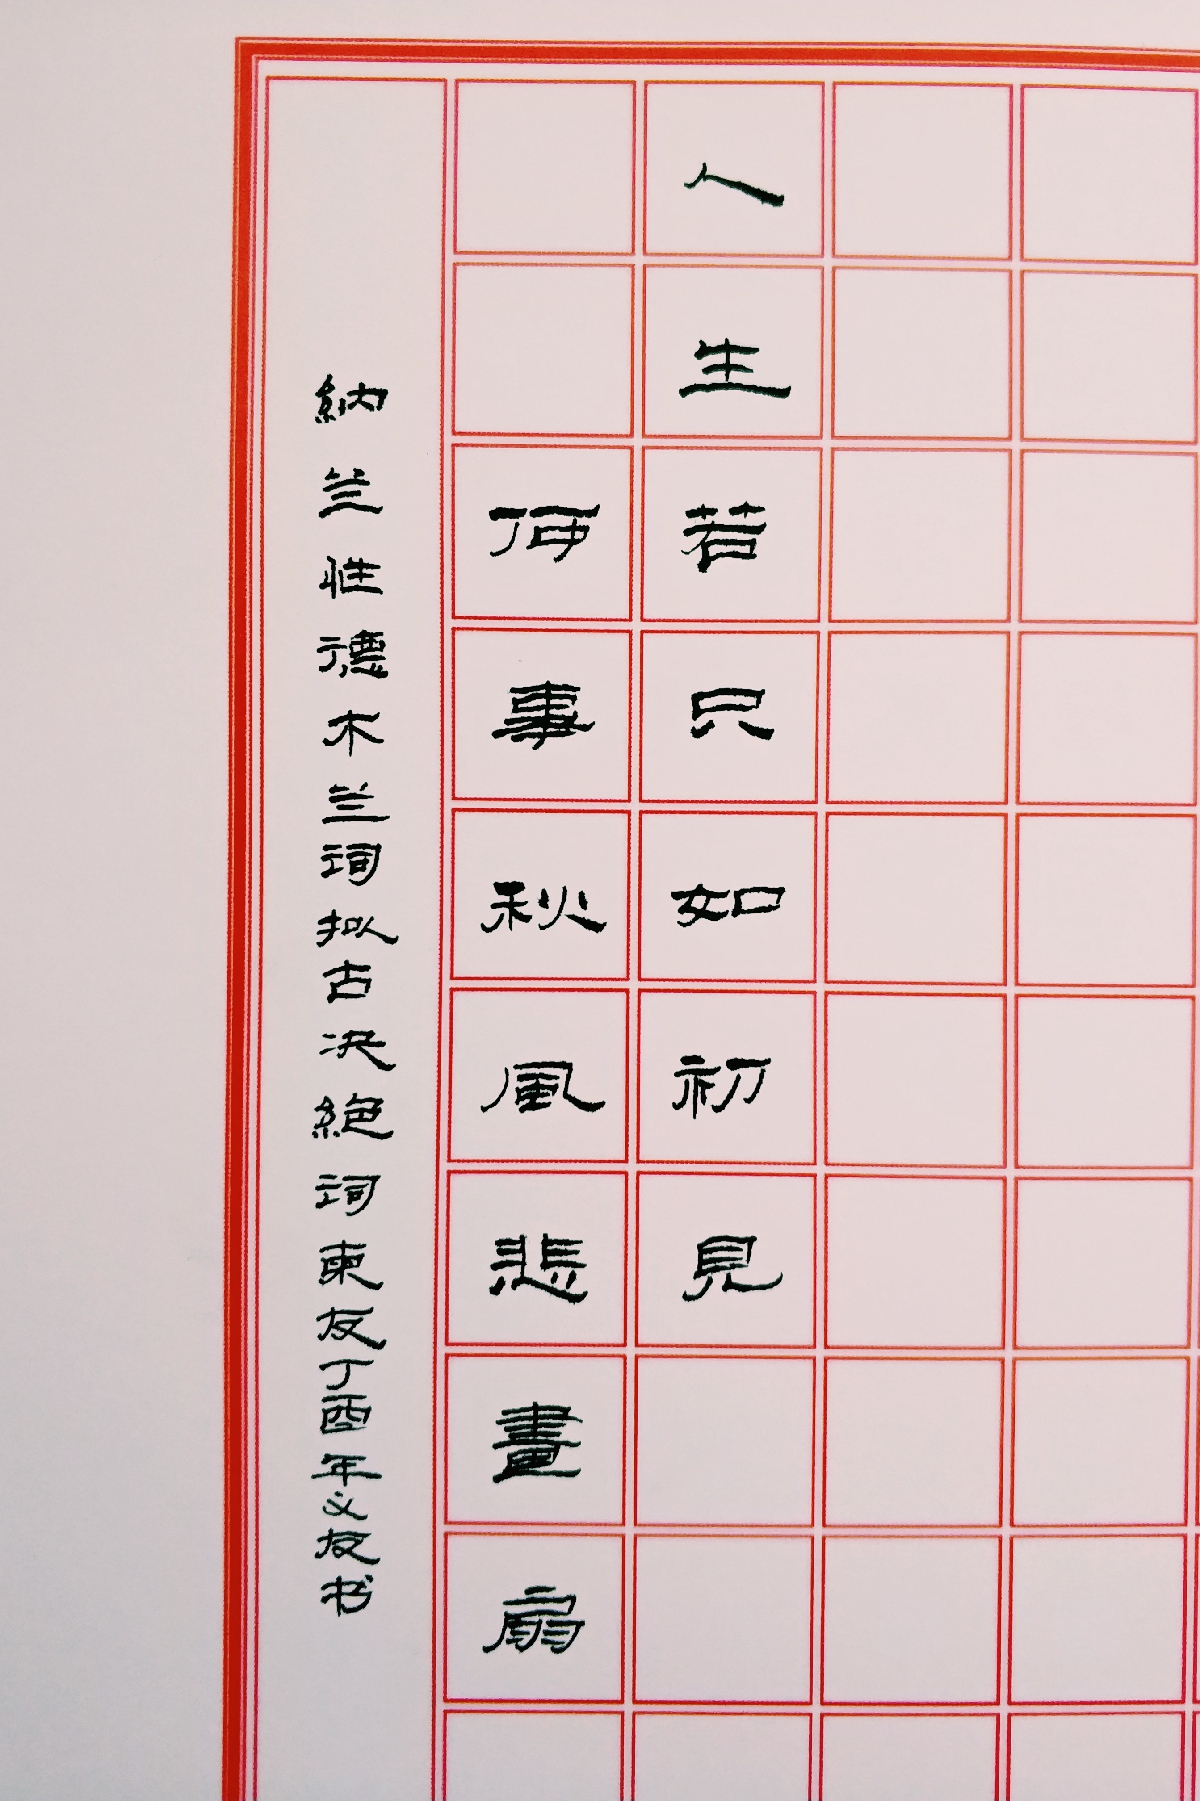 人生若只如初見
何事秋風悲畫扇
納兰性德木兰词拟古决絕词柬友丁酉年义友书